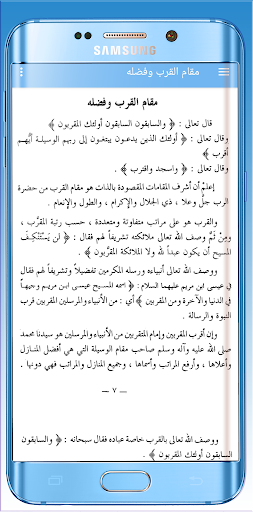 SAMSUNG
مقام القرب وفضله
مقام القرب وفضله
قال تعالى : ﴿ والسابقون السابقون أولئك المقربون ﴾
وقال تعالى : ﴿ أولئك الذين يدعون يبتغون إلى ربهم الوسيلة أيُّهم
أقرب ﴾
وقال تعالى : ﴿ واسجد واقترب ﴾
إعلمْ أن أشرف المقامات المقصودة بالذات هو مقام القرب من حضرة
الرب جلَّ وعلا ، ذي الجلال والإكرام ، والطول والإنعام .
والقرب هو على مراتب متفاوتة ومتعددة ، حسب رتبة المقرَّب ،
ومِنْ ثَمَّ وصف الله تعالى ملائكته تشريفاً لهم فقال : ﴿ لن يَسْتَنْكِفَ
المسيح أن يكون عبداً لله ولا الملائكة المقرَّبون ﴾ .
ووصف الله تعالى أنبياءه ورسله المكرمين تفضيلاً وتشريفاً لهم فقال
في عيسى ابن مريم عليهما السلام : ﴿ اسمه المسيح عيسى ابن مريم وجيهاً
في الدنيا والآخرة ومن المقربين ﴾ أي : من الأنبياء والمرسلين المقربين قرب
النبوة والرسالة .
وإن أقرب المقربين وإمام المتقربين من الأنبياء والمرسلين هو سيدنا محمد
صلى الله عليه وآله وسلم صاحب مقام الوسيلة التي هي أفضل المنازل
وأعلاها ، وأرفع المراتب وأسماها ، وجميع المنازل والمراتب فهي دونها .
— ٧ —
ووصف الله تعالى بالقرب خاصة عباده فقال سبحانه : ﴿ والسابقون
السابقون أولئك المقربون ﴾ .